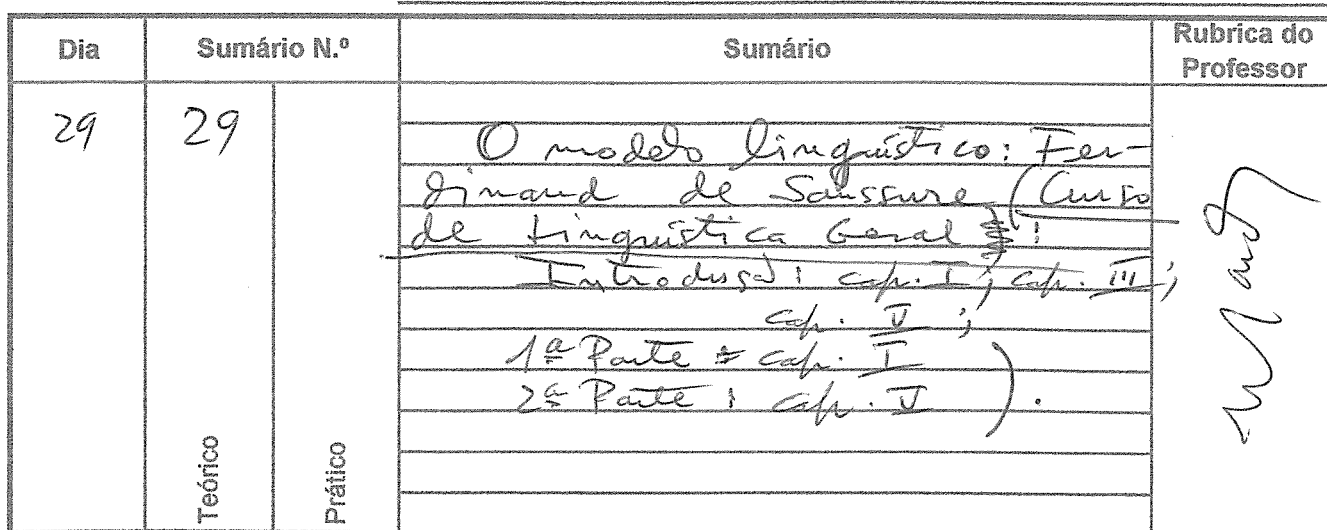 Dia Sumário N.º Sumário Rubrica do Professor
29 29
O modelo linguístico: Fer-
dinand de Saussure (Curso
de Linguística Geral):
Introdução: cap. I; cap. III;
cap. V;
1ª Parte: cap. I
2ª Parte: cap. V).
Teórico
Prático